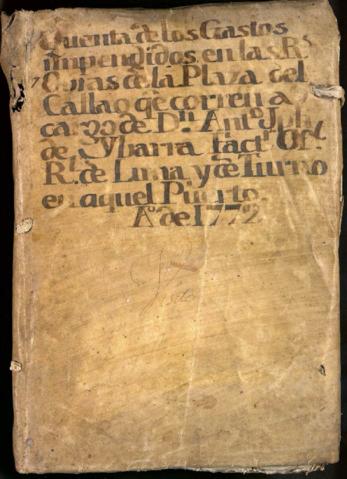 Quenta de los Gastos
impendidos, en las Rs.
Obras de la Plaza del
Callao qe. corren a
cargo de Dn. Anto. Jph.
de Ybarra factl. Ofl.
Rl. de Lima y de Turno
en aquel Puerto.
Ao. de 1772